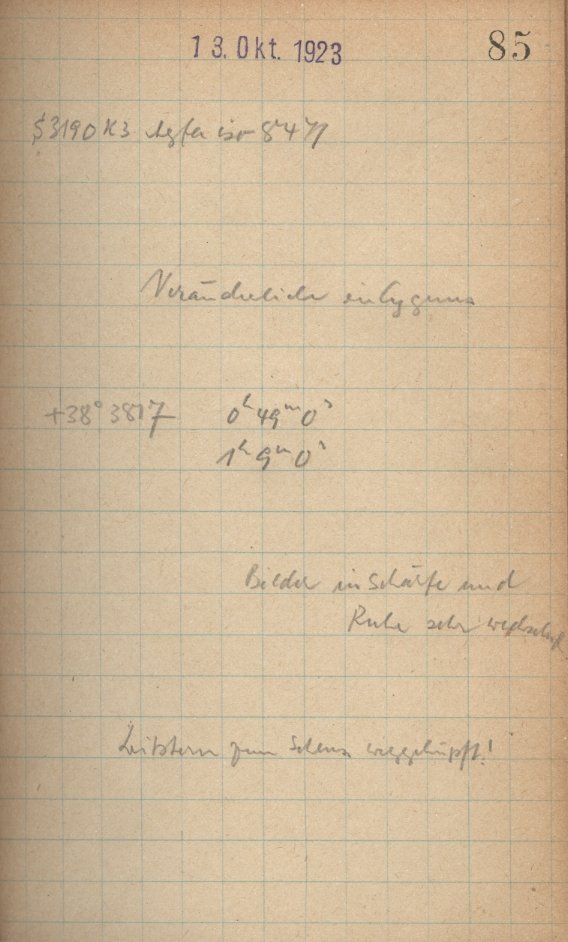 13. Okt. 1923 85
S3190 K3 Agfa iso
Veränderliche in Cygnus
+38° 3817 0ʰ 49ᵐ 0ˢ
1ʰ 9ᵐ 0ˢ
Bilder in Schärfe und
Ruhe sehr wechselnd
Leitstern zum Schluss weggehüpft!